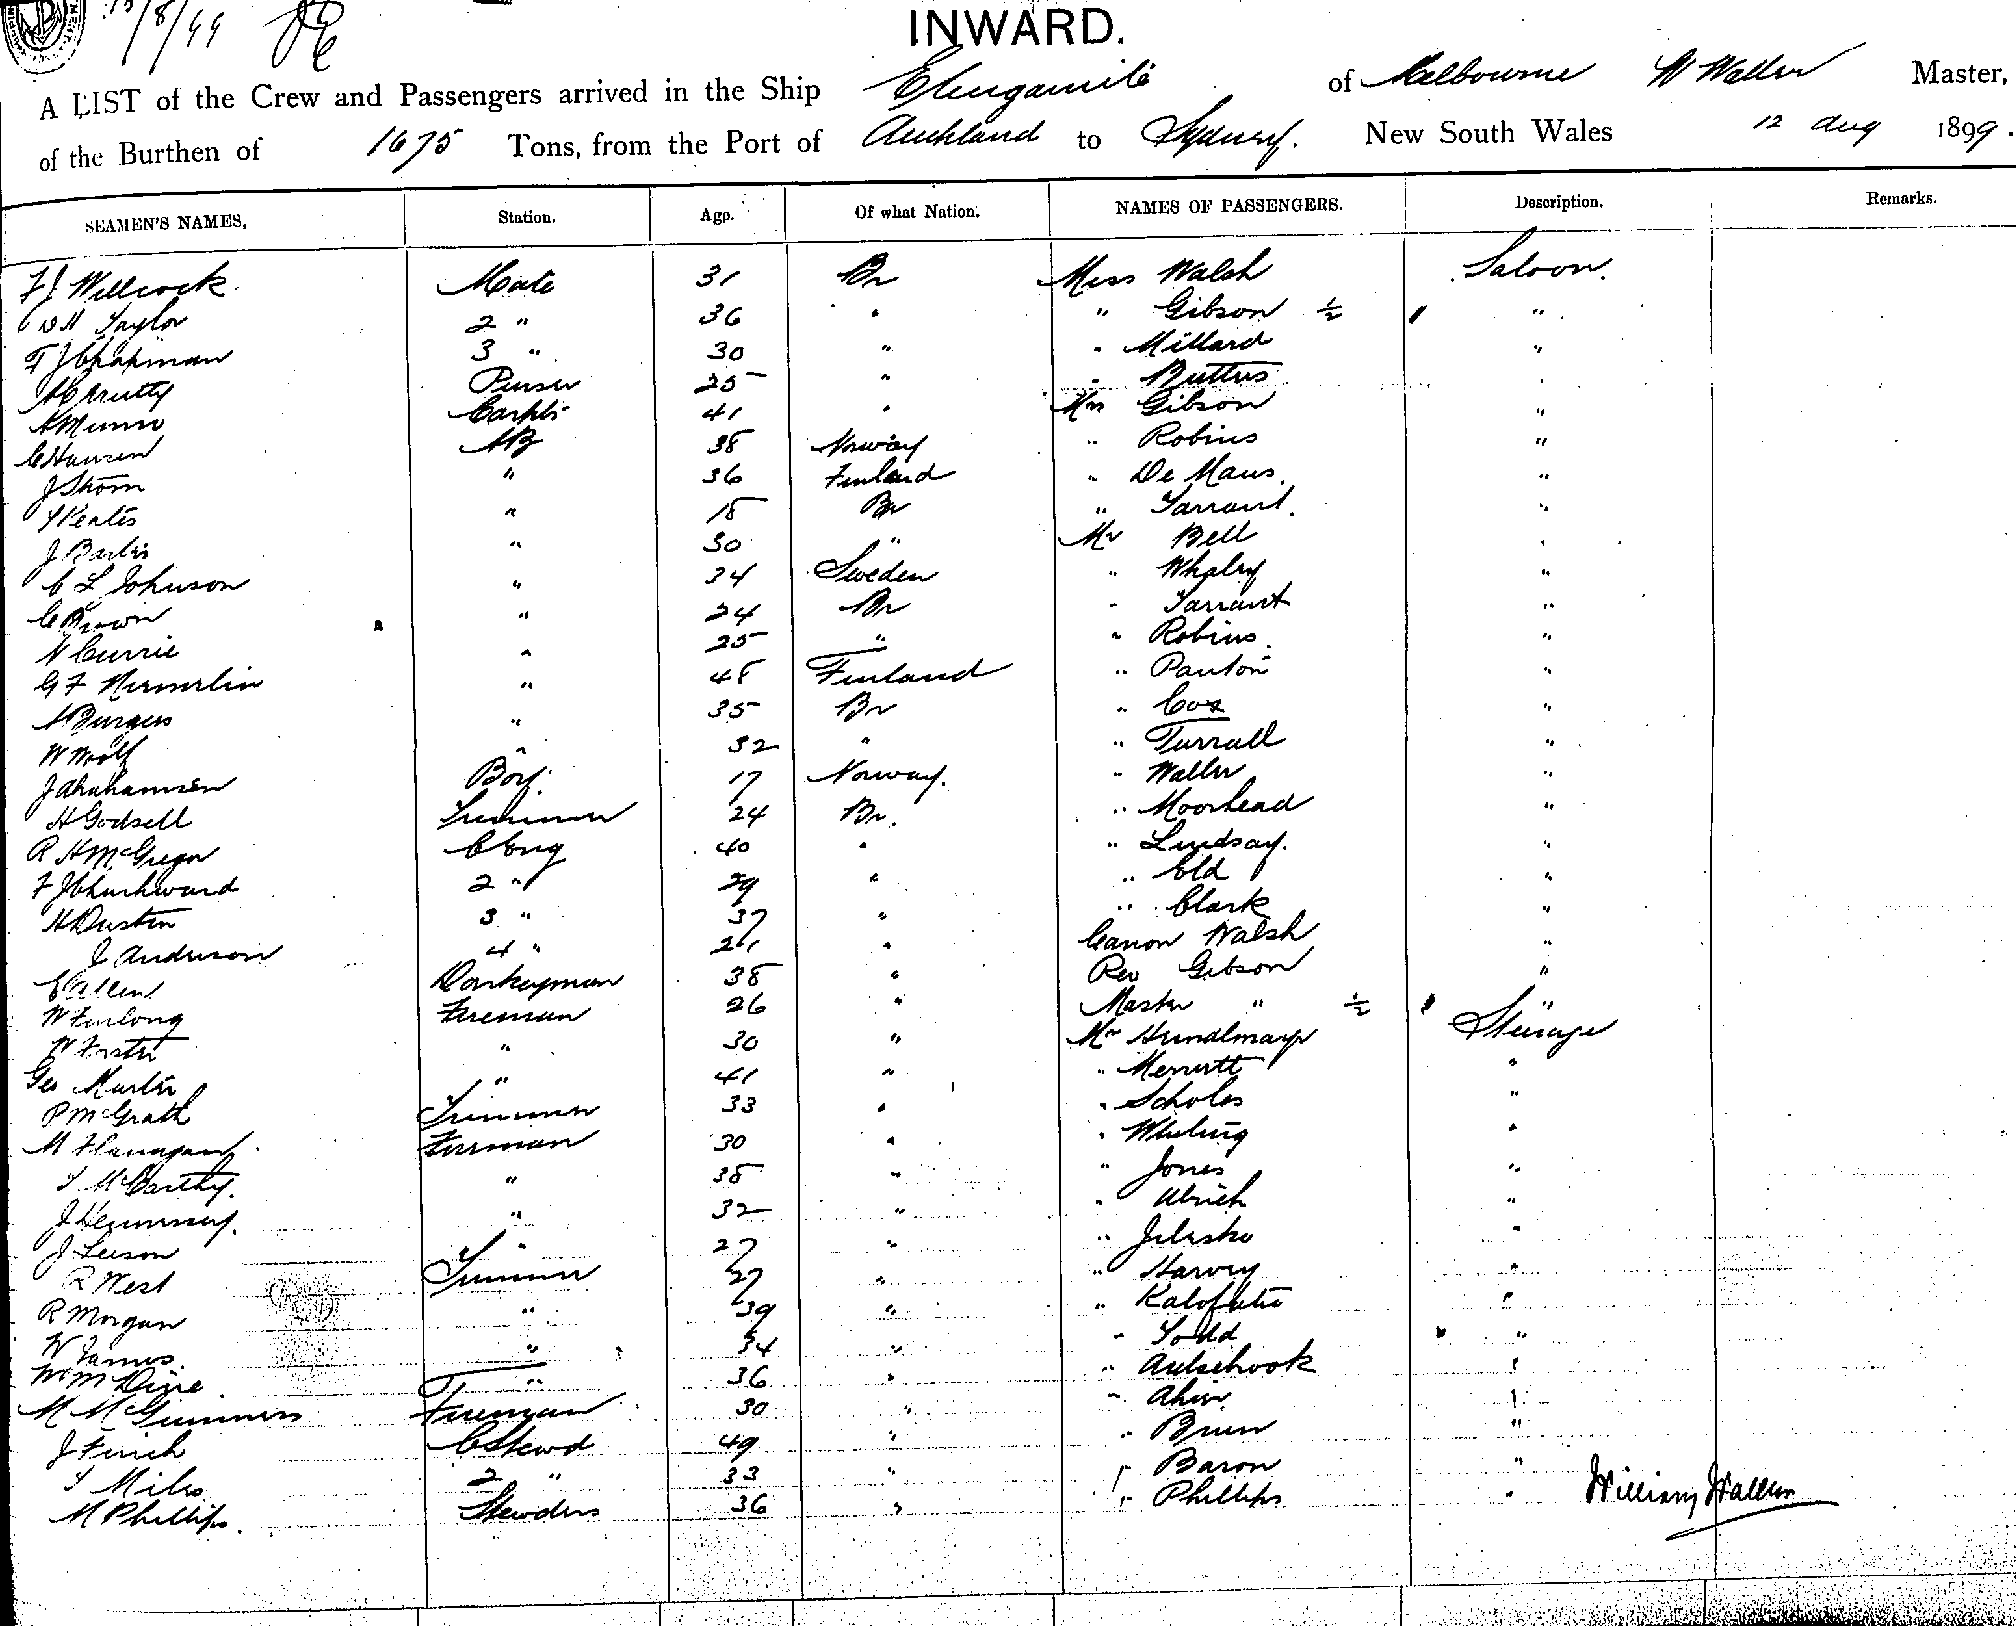 15/8/99
INWARD.
A LIST of the Crew and Passengers arrived in the Ship Elingamite of Melbourne W Waller Master,
of the Burthen of 1675 Tons, from the Port of Auckland to Sydney. New South Wales 12 Aug 1899.
SEAMEN'S NAMES, Station. Age. Of what Nation. NAMES OF PASSENGERS. Description. Remarks.
F J Willcock Mate 31 Br Miss Walsh Saloon.
Taylor 2 " 36 " " Gibson ½ "
F J Chapman 3 " 30 " " Millard "
Purser 25 " " Buttrs
A Munro Carptr 41 " Mrs Gibson "
C Hansen AB 38 Norway " Robins "
J Strom " 36 Finland " De Maus "
" 18 Br " Tarrant. "
" 30 " Mr Bell "
C L Johnson " 34 Sweden " Whaley "
C Brown " 24 Br " Tarrant "
N Currie " 25 " " Robins "
G F " 48 Finland " Panton "
A Burgess " 35 Br " Cox "
W Woolf " 32 " " Turrall "
J Abrahamsen Boy. 17 Norway. " Waller "
H Godsell Trimmer 24 Br. " Moorhead "
R H McGregor C Eng 40 " " Lindsay. "
F J Churchward 2 " 29 " " Eld "
H Dustin 3 " 37 " " Clark "
J Anderson 4 " 21 " Canon Walsh "
E Allen Donkeyman 38 " Rev Gibson "
W Furlong Fireman 26 " Master " ½ "
W Forster " 30 " Mr Hundlmayr Steerage
Geo Martin " 41 " " Merritt "
P McGrath Trimmer 33 " " Scholes "
M Flanagan Fireman 30 " "
T McCarthy. " 38 " " Jones "
J Hennessy. " 32 " " Ulrich "
J Leeson " 27 " " "
R West Trimmer 27 " " Harvey "
R Morgan " 39 " " "
W James " 34 " " Todd "
Wm McDine " 36 " "
M Fireman 30 " "
J Finch C Stewd 49 " " Brun "
T Miles 2 " 33 " " Baron "
M Phillips. Stewdess 36 " " Phillips "
William Waller